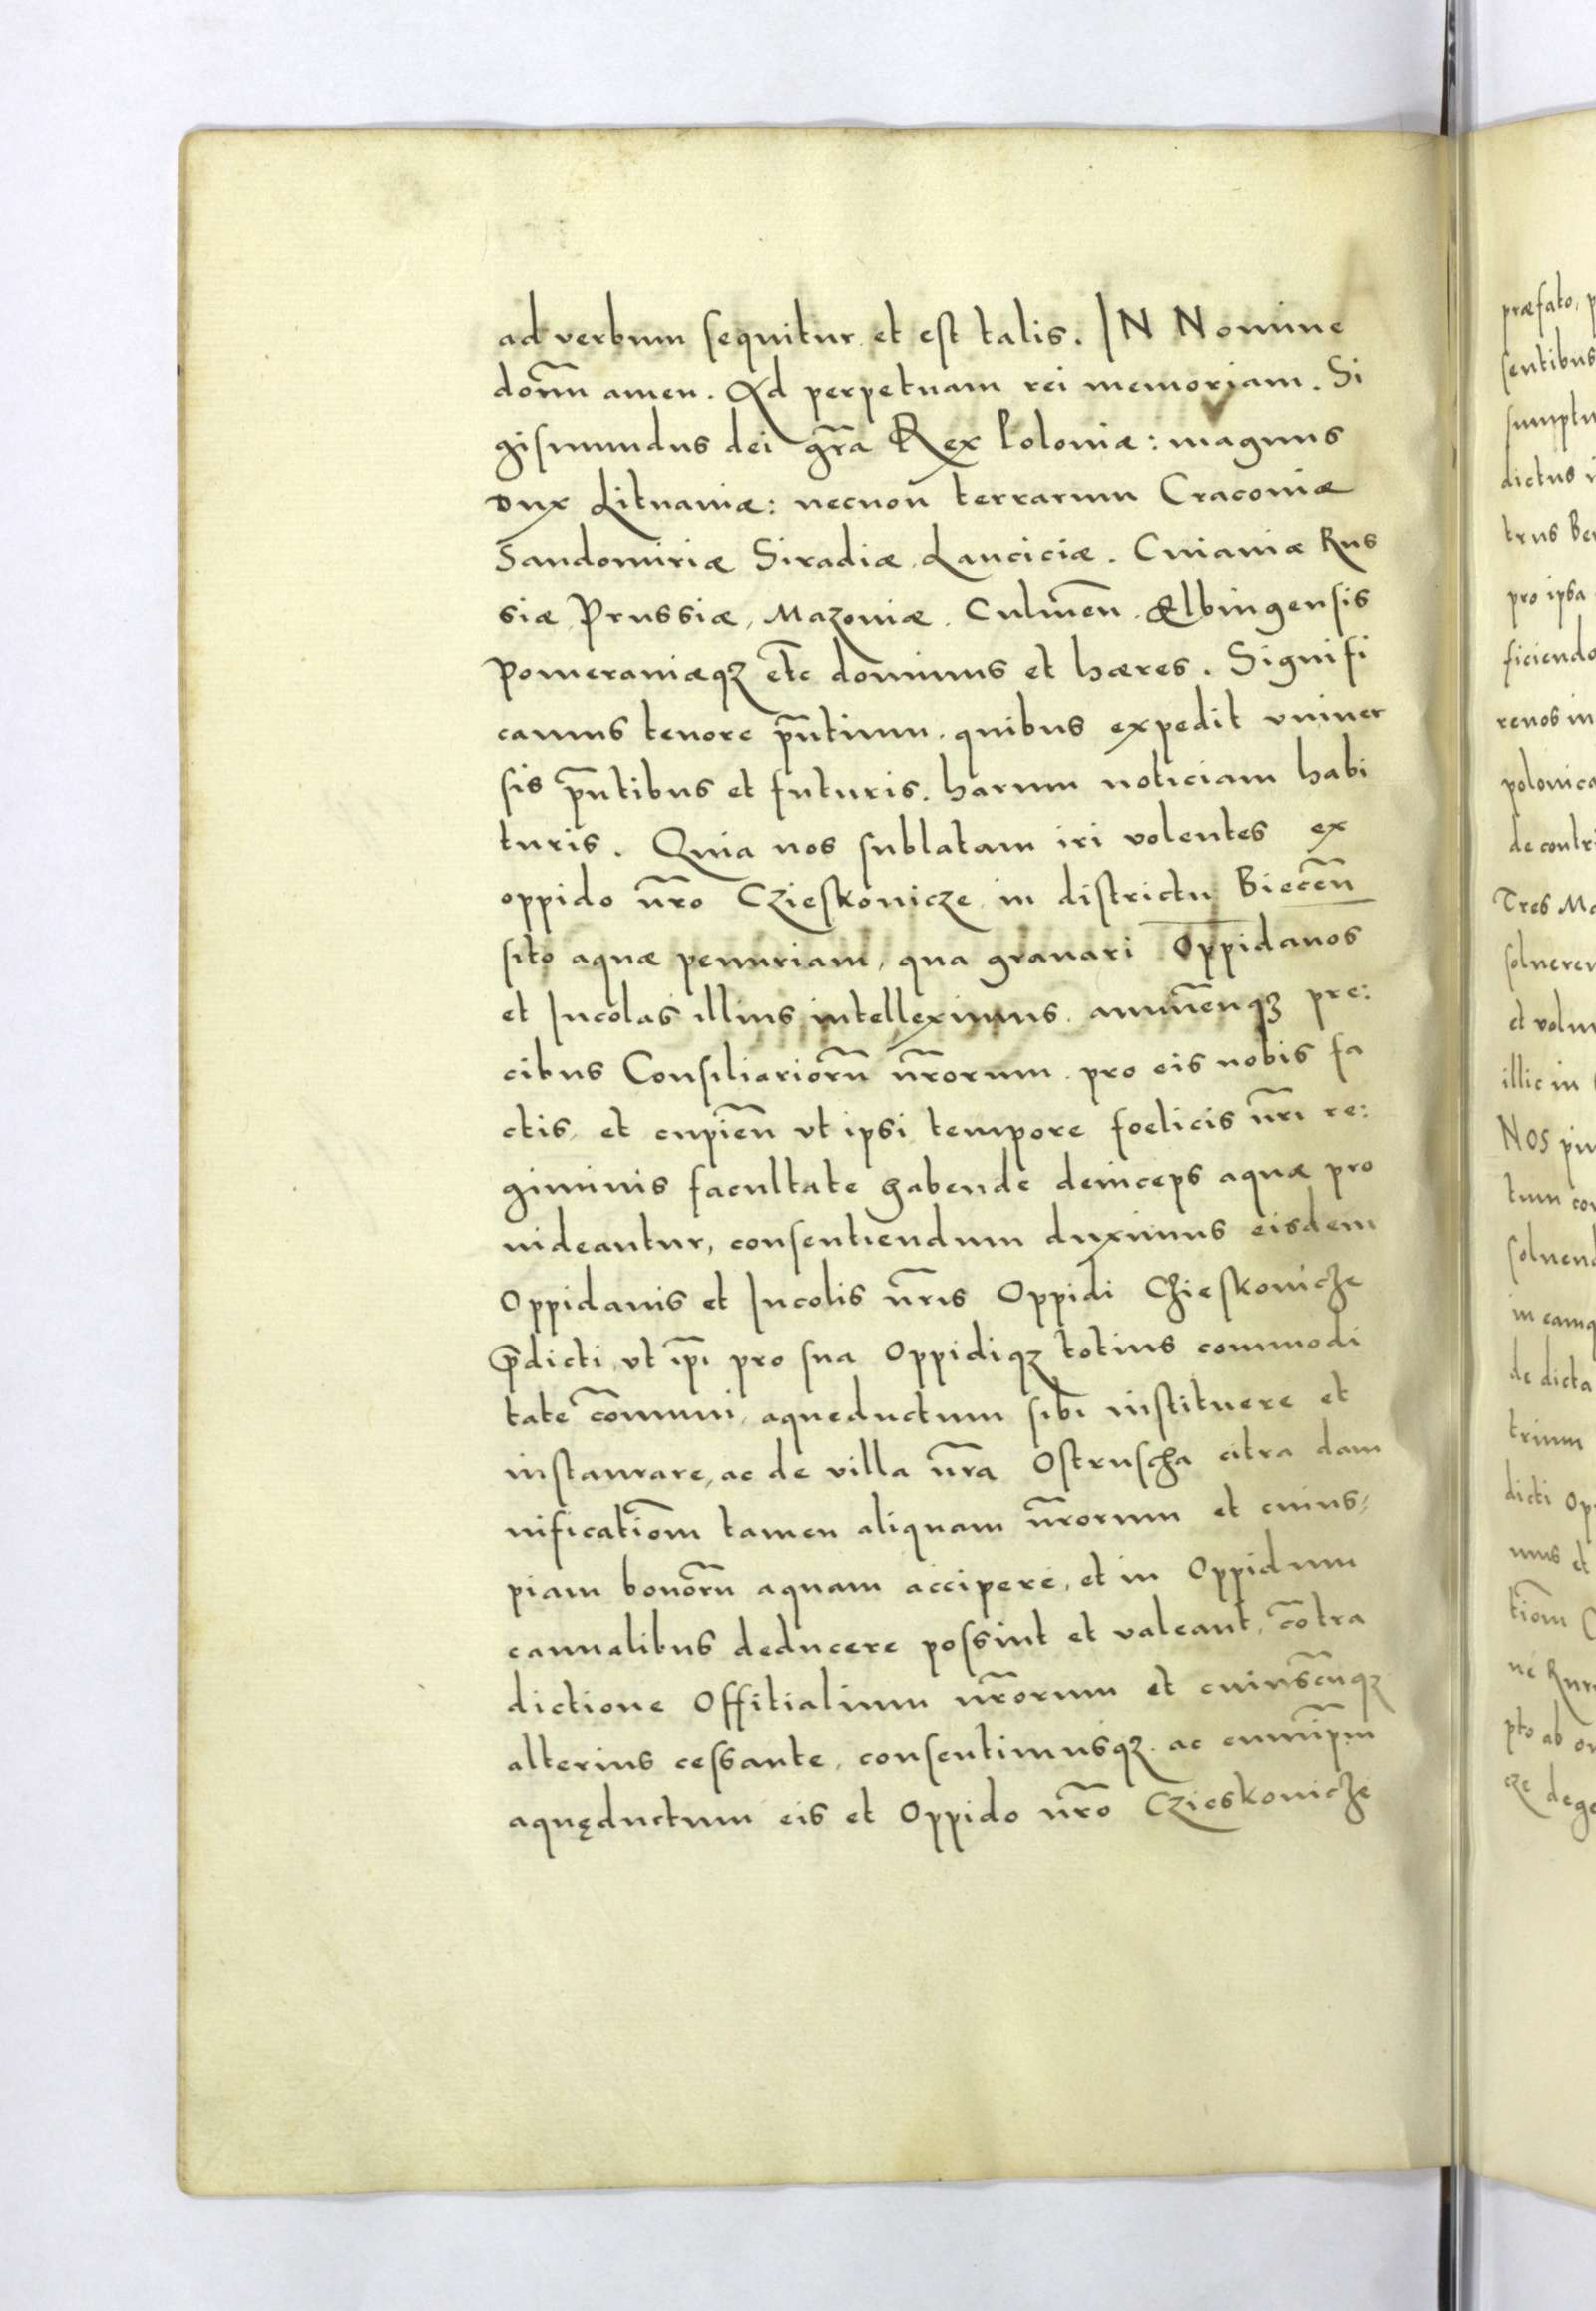 ad verbum sequitur et est talis. IN Nomine
dom̃ amen. Ad perpetuam rei memoriam. Si
gismundus dei gr̃a Rex Poloniæ: magnus
Dux Lituaniæ: necnon terrarum Cracouiæ
Sandomiriæ Siradiæ, Lanciciæ. Cuiauiæ Rus
siæ, Prussiæ, Mazouiæ. Culmeñ. Elbingensis
Pomeraniæqȝ etc̃ dominus et hæres. Signifi
camus tenore pñtium. quibus expedit vniuer
sis pñtibus et futuris. harum noticiam habi
turis. Quia nos sublatam iri volentes ex
oppido nr̃o Czieskouicze in districtu Bieceñ
sito aquæ penuriam, qua grauari Oppidanos
et Incolas illius intelleximus. annueñqȝ pre:
cibus Consiliariorũ nr̃orum. pro eis nobis fa
ctis, et cupieñ vt ipsi tempore foelicis nr̃i re:
giminis facultate habende deinceps aquæ pro
uideantur, consentiendum duximus eisdem
Oppidanis et Incolis nr̃is Oppidi Czieskouicze
p̃dicti vt ip̃i pro sua Oppidiqȝ totius commodi
tate cõmuni, aqueductum sibi instituere et
instaurare, ac de villa nr̃a Ostruscha citra dam
nificatiõm tamen aliquam nr̃orum et cuius⸗
piam bonorũ aquam accipere, et in Oppidum
cannalibus deducere possint et valeant, cõtra
dictione Offitialium nr̃orum et cuiuscũqȝ
alterius cessante, consentimusqȝ. ac
aquęductum eis et Oppido nr̃o Czieskouicze
præfato,
sentibus
dictus
trus
pro ipsa
ficiendo
renos in
de contr
Tres
et volu
illic in
NOS
tum
de dicta
trium
dicti Op
mus et
tiõm
pto ab
cze